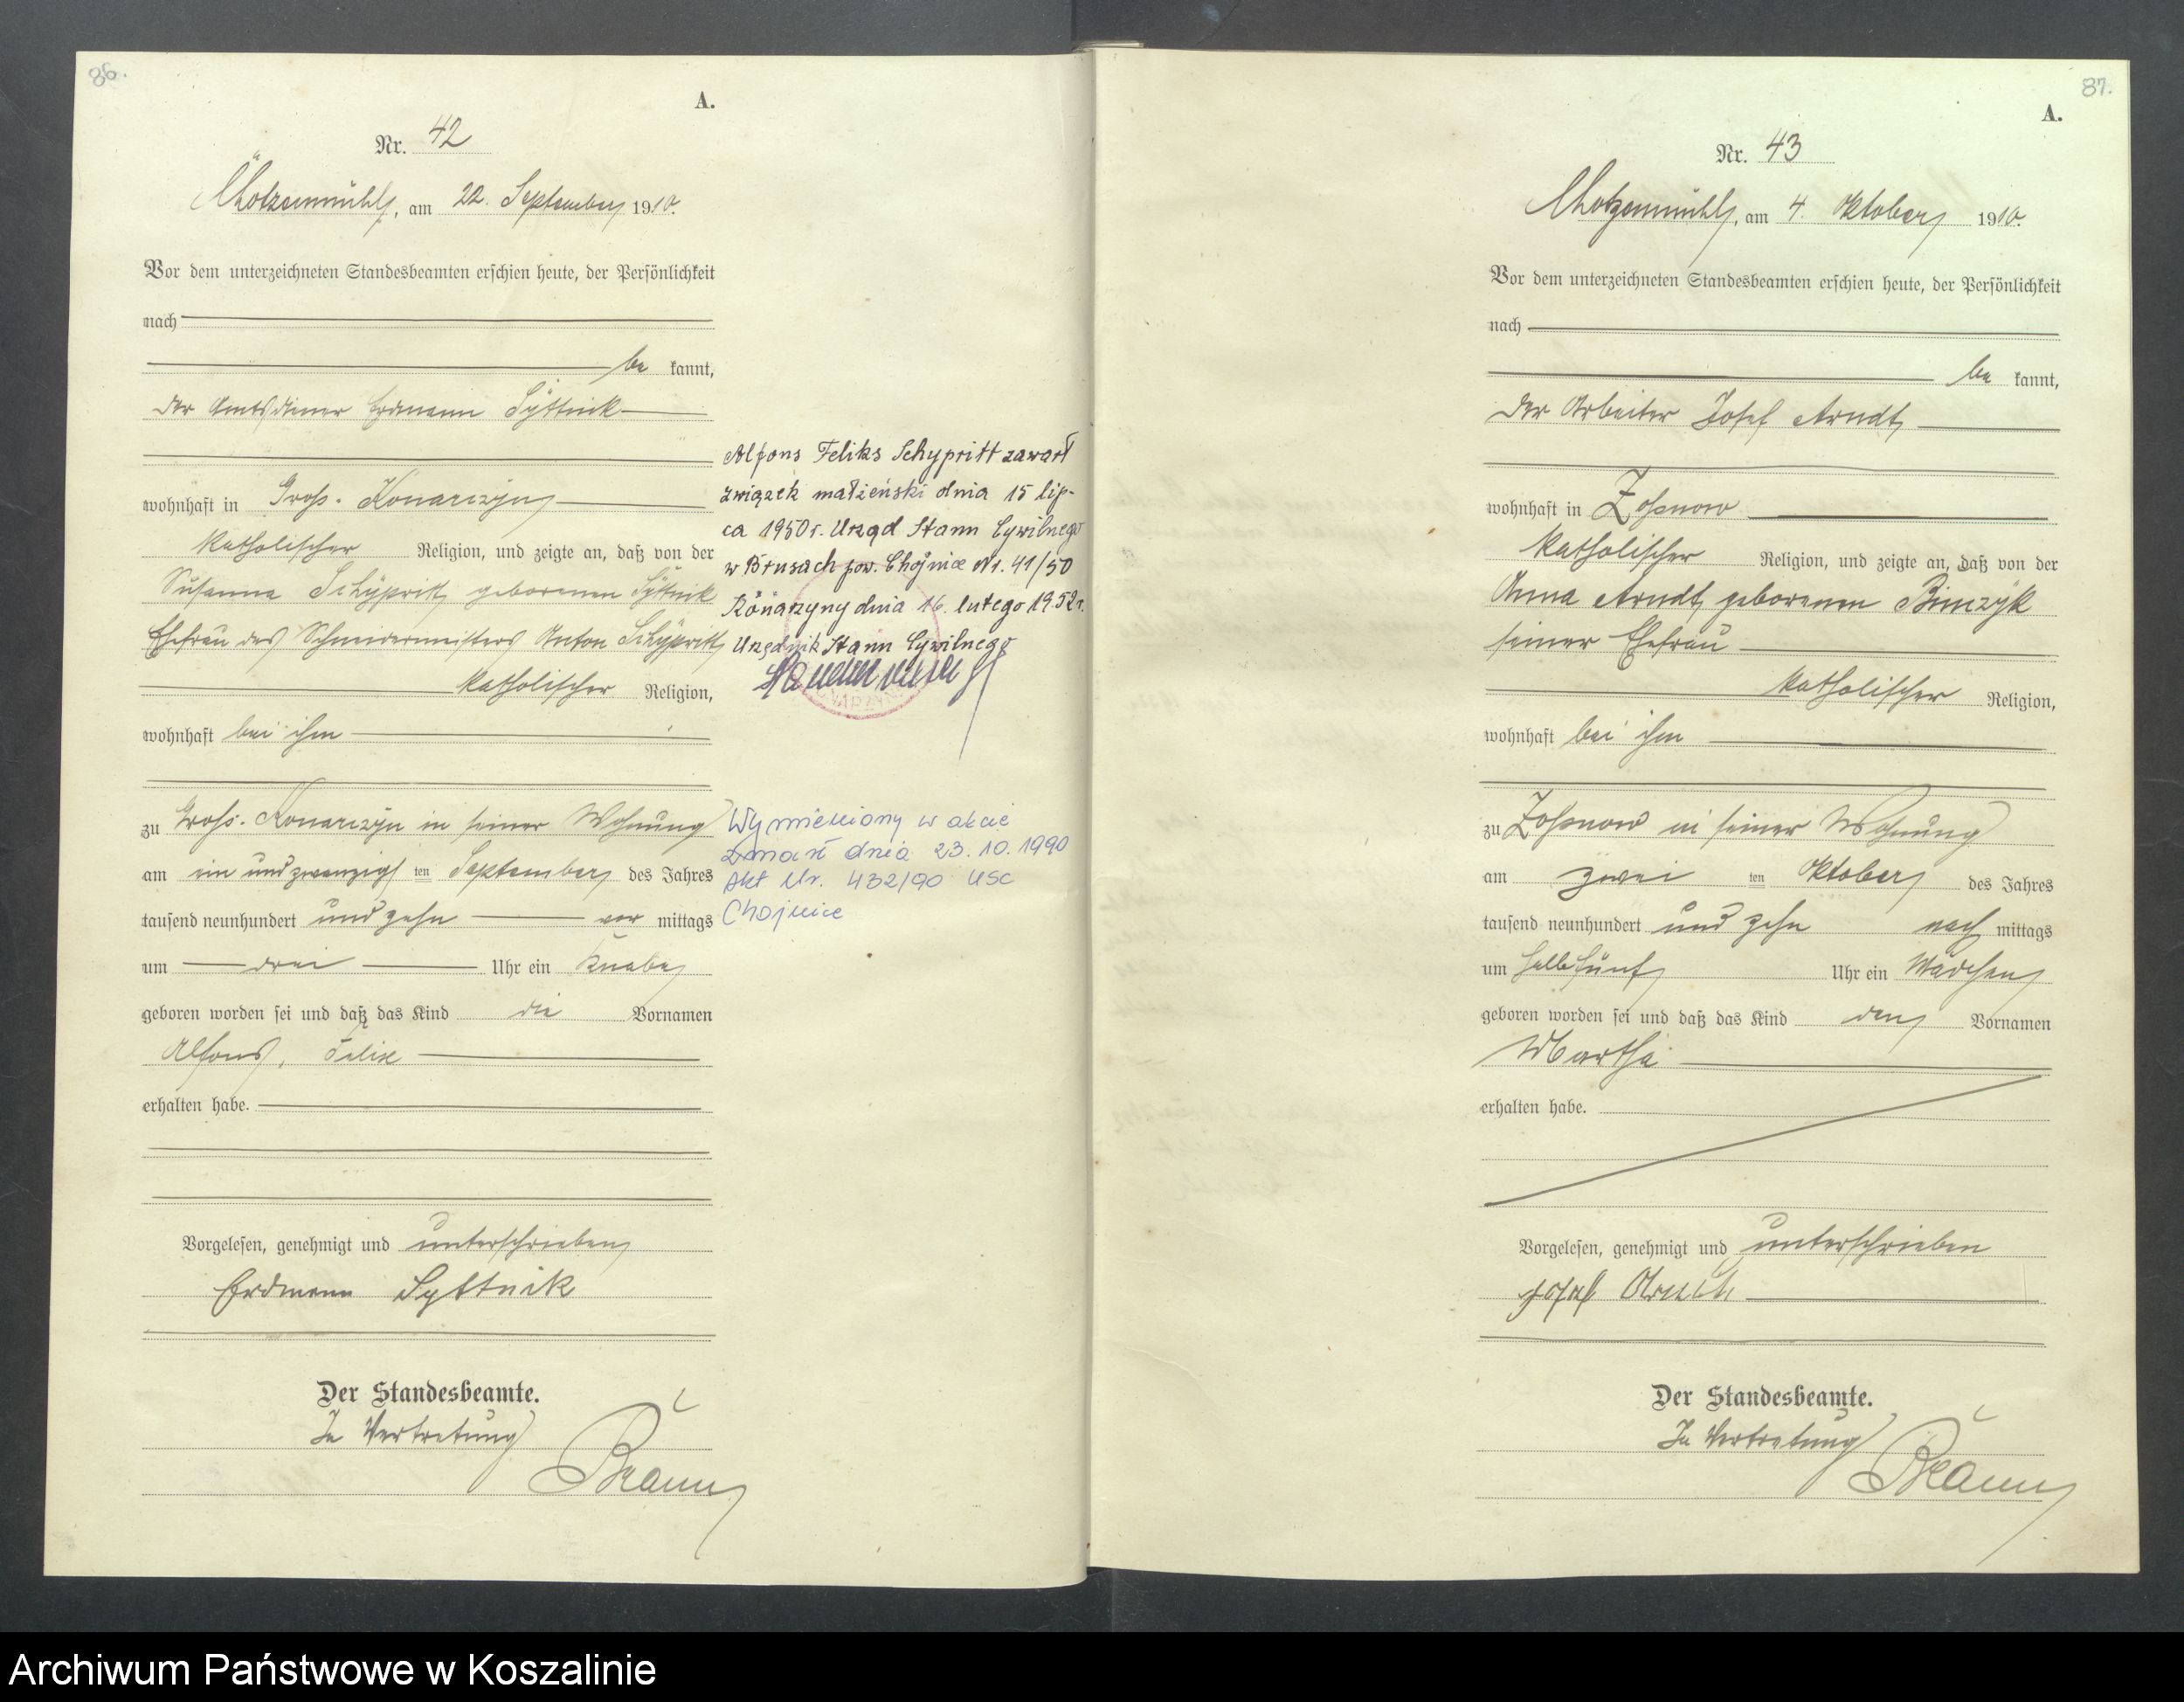 86.
A.
Nr. 42
Motzenmühle, am 22. September 1910.
Vor dem unterzeichneten Standesbeamten erschien heute, der Persönlichkeit
nach
be kannt,
der Amtsdiener Erdmann Syttnik
wohnhaft in Groß-Konarczyn
katholischer Religion, und zeigte an, daß von der
Susanna Schypritt, geborenen Syttnik
Ehefrau des Schneidermeisters Anton Schypritt,
katholischer Religion,
wohnhaft bei ihm
zu Groß-Konarczyn in seiner Wohnung
am ein und zwanzigsten September des Jahres
tausend neunhundert und zehn vor mittags
um drei Uhr ein Knabe
geboren worden sei und daß das Kind die Vornamen
Alfons, Felix
erhalten habe.
Vorgelesen, genehmigt und unterschrieben
Erdmann Syttnik
Der Standesbeamte.
In Vertretung
Alfons Feliks Schypritt zawarł
związek małżeński dnia 15 lip-
ca 1950 r. Urząd Stanu Cywilnego
w Brusach pow. Chojnice Nr. 41/50
Konarzyny dnia 16. lutego 1952 r.
Urzędnik Stanu Cywilnego
Wymieniony w akcie
zmarł dnia 23.10.1990
Akt Nr. 432/90 USC
Chojnice
87.
A.
Nr. 43
Motzenmühle, am 4. Oktober 1910.
Vor dem unterzeichneten Standesbeamten erschien heute, der Persönlichkeit
nach
be kannt,
der Arbeiter Josef Arndt,
wohnhaft in Zossnow
katholischer Religion, und zeigte an, daß von der
Anna Arndt, geborenen Binczyk
seiner Ehefrau
katholischer Religion,
wohnhaft bei ihm
zu Zossnow in seiner Wohnung
am zwei ten Oktober des Jahres
tausend neunhundert und zehn nach mittags
um halb fünf Uhr ein Mädchen
geboren worden sei und daß das Kind den Vornamen
Martha
erhalten habe.
Vorgelesen, genehmigt und unterschrieben
Josef Arndt.
Der Standesbeamte.
In Vertretung
Archiwum Państwowe w Koszalinie